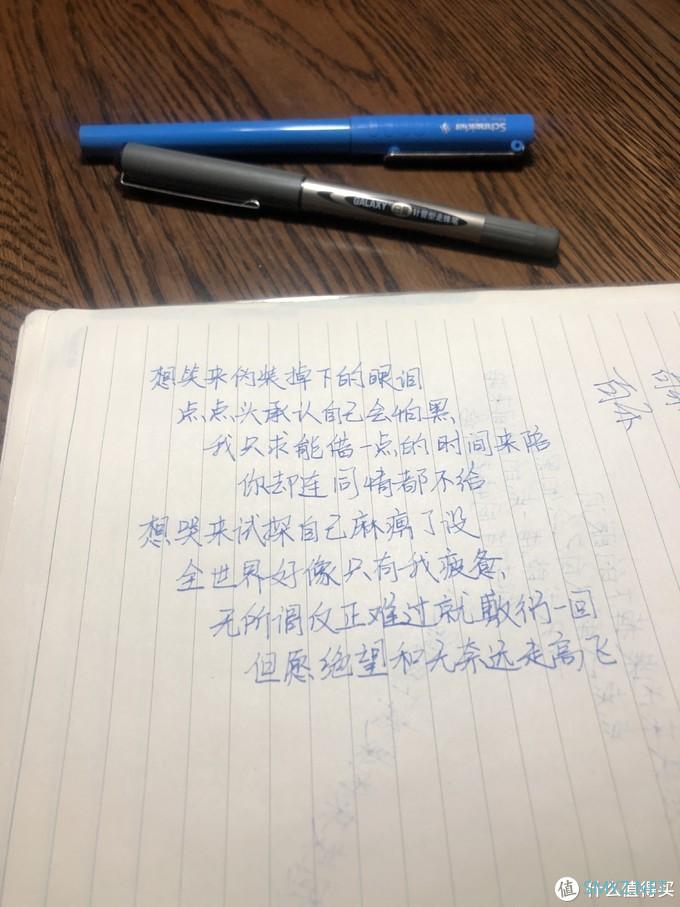 Schneider
GALAXY 计算型走珠笔
想笑来伪装掉下的眼泪
点点头承认自己会怕黑
我只求能借一点的时间来陪
你却连同情都不给
想哭来试探自己麻痹了没
全世界好像只有我疲惫
无所谓反正难过就敷衍一回
但愿绝望和无奈远走高飞
值 什么值得买